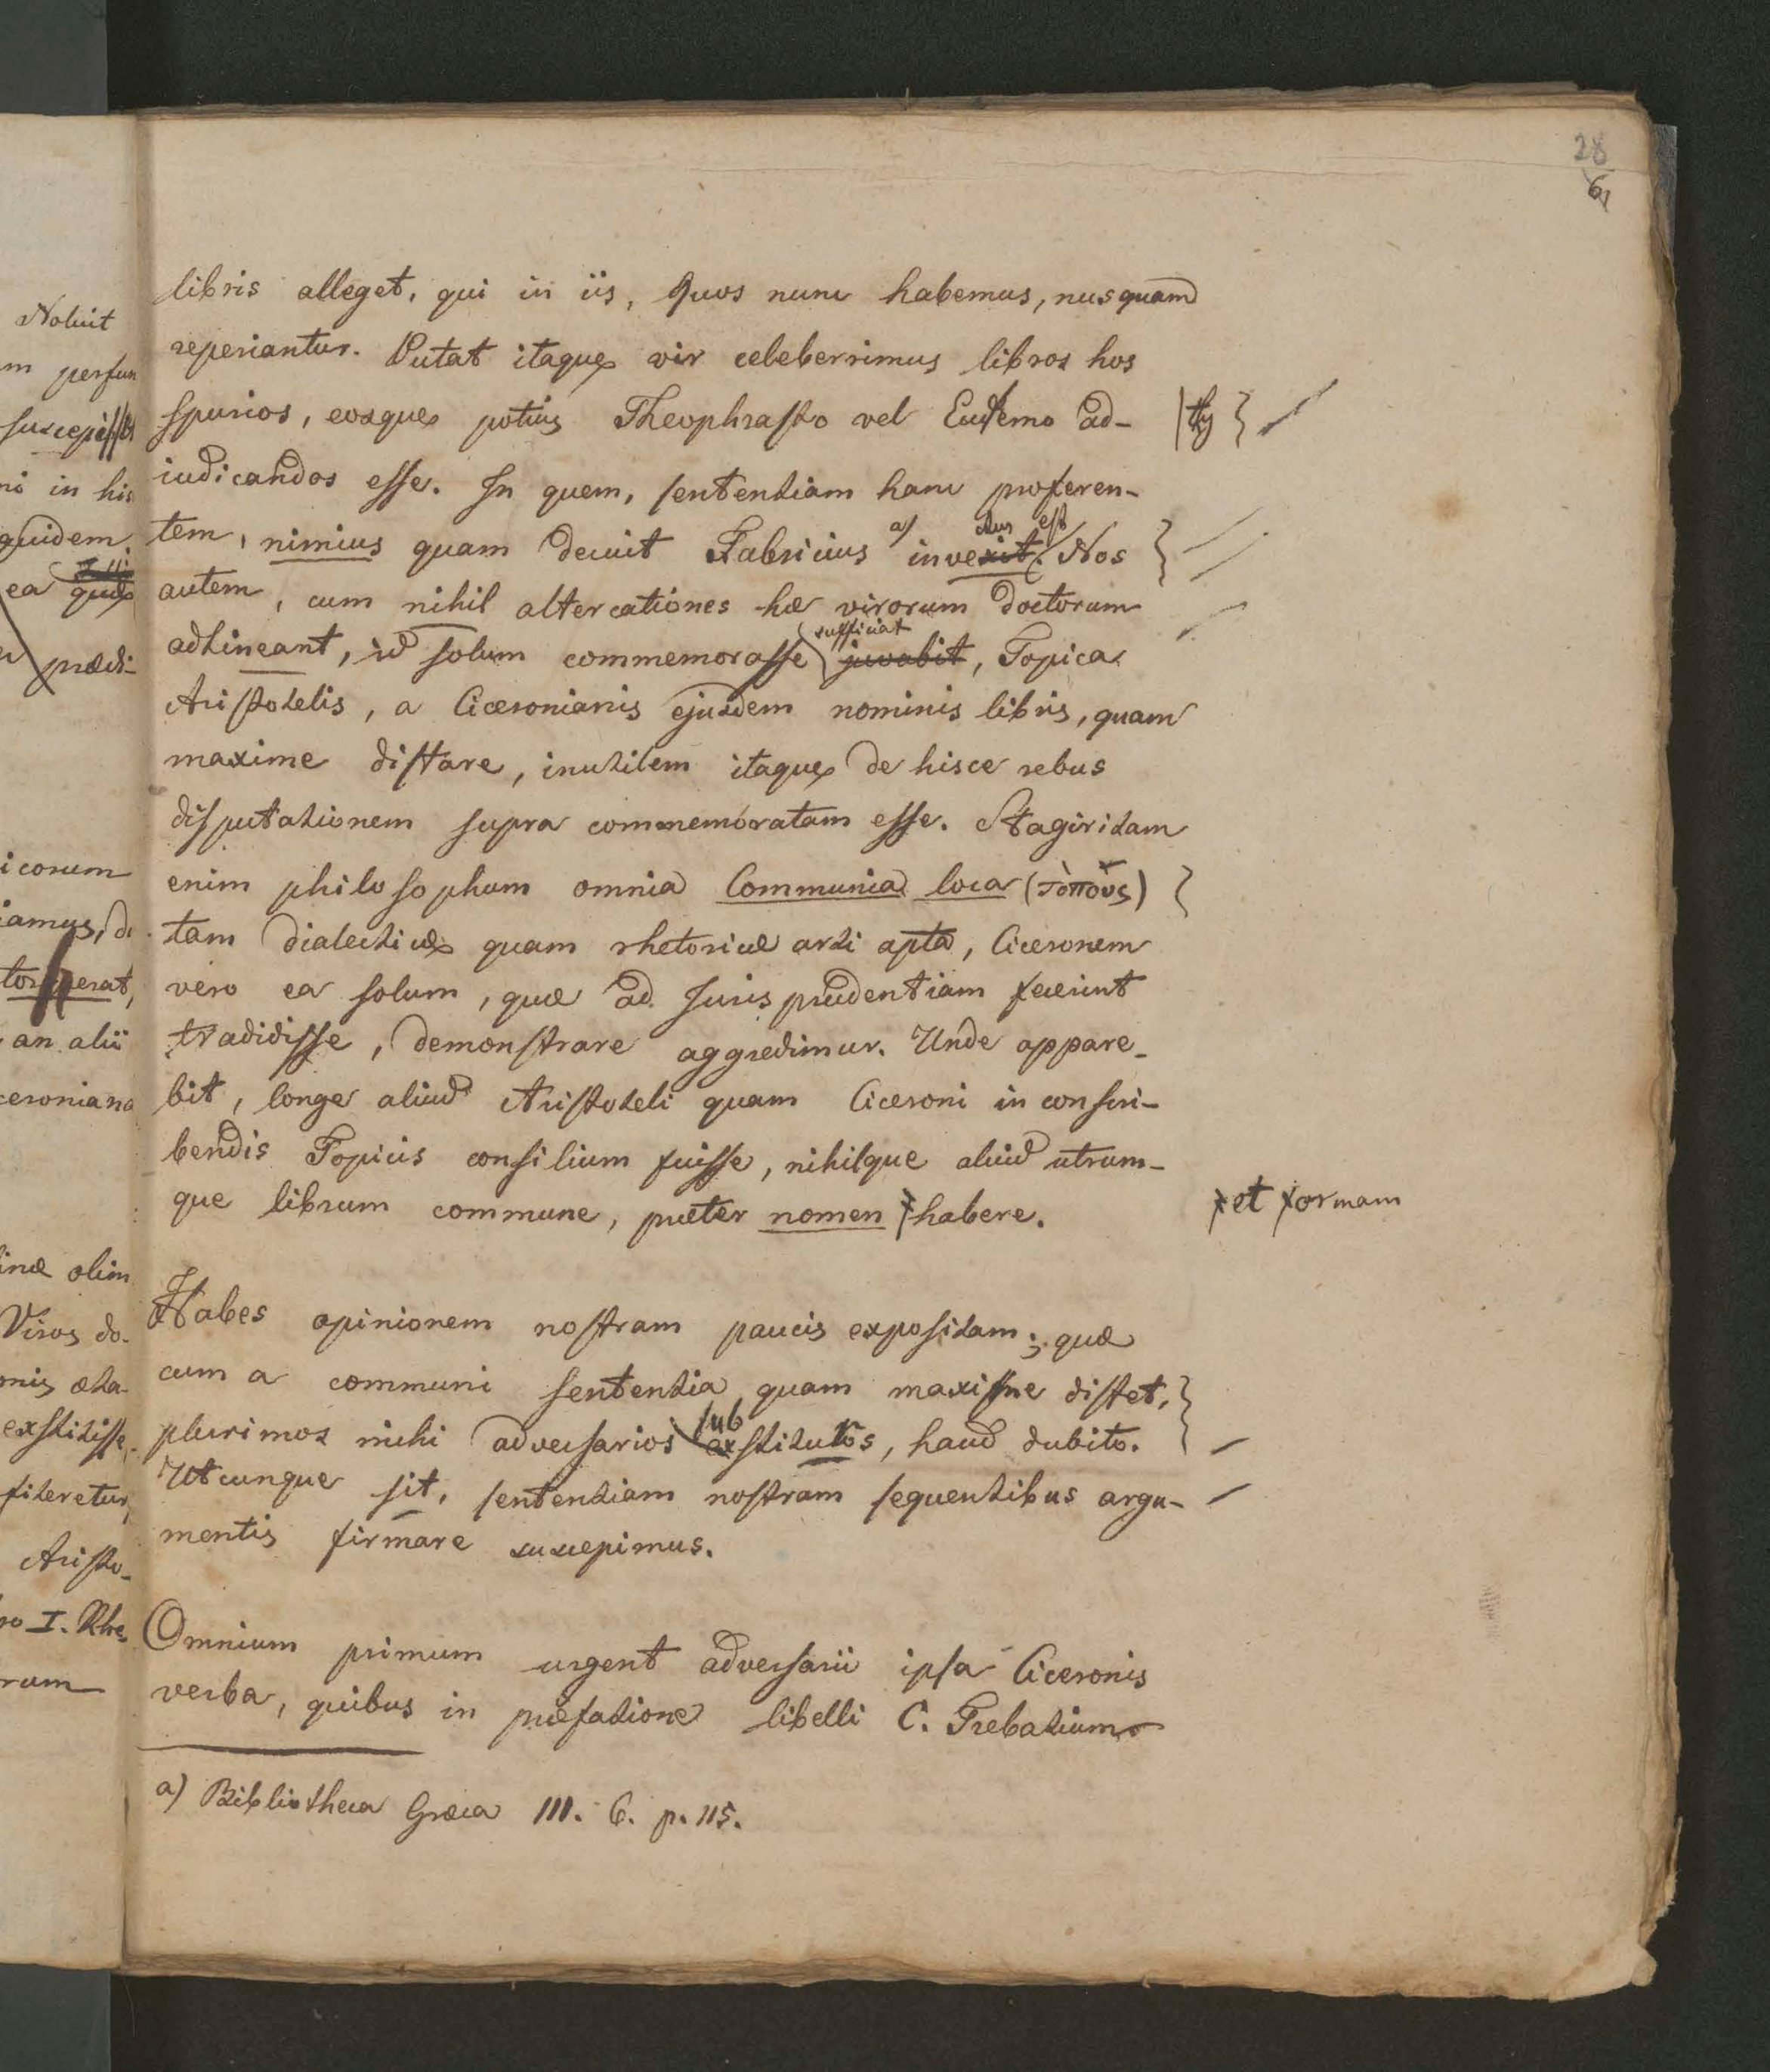 28
61
libris alleget, qui in iis, quos nunc habemus, nusquam
reperiantur. Putat itaque vir celeberrimus libros hos
spurios, eosque potius Theophrasto vel Eudemo ad-
iudicandos esse. In quem, sententiam hanc proferen-
tem, nimius quam decuit Fabricius a) invexit. ctus est Nos
autem, cum nihil altercationes hæ virorum doctorum
adtineant, id solum commemorasse juvabit sufficiat, Topica
Aristotelis, a Ciceronianis ejusdem nominis libris, quam
maxime distare, inutilem itaque de hisce rebus
disputationem supra commemoratam esse. Stagiritam
enim philosophum omnia Communia loca (τòποὺς)
tam dialecticæ quam rhetoricæ arti apta, Ciceronem
vero ea solum, quæ ad Jurisprudentiam fecerint
tradidisse, demonstrare aggredimur. Unde appare-
bit, longe aliud Aristoteli quam Ciceroni in conscri-
bendis Topicis consilium fuisse, nihilque aliud utrum-
que librum commune, præter nomen habere.
et formam
Habes opinionem nostram paucis expositam; quæ
cum a communi sententia quam maxime distet,
plurimos mihi adversarios exstituros sub, haud dubito.
Utcunque sit, sententiam nostram sequentibus argu-
mentis firmare suscepimus.
Omnium primum urgent adversarii ipsa Ciceronis
verba, quibus in præfatione libelli C. Trebatium
a) Bibliotheca Græca III. 6. p. 115.
Noluit
m perfun
ni in his
quidem.
ea quæ
prædi-
icorum
iamus, de
an alii
ceroniana
inæ olim
Viros do-
mis æta-
exstitisse,
fiteretur,
Aristo-
ro I. Rhe
rum